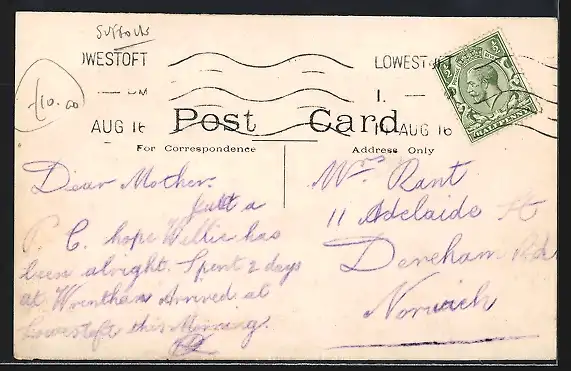 Suffolk
£10.00
OWESTOFT
PM
AUG 16
LOWESTOFT
1.
11 AUG 16
HALFPENNY
Post Card
For Correspondence
Address Only
Dear Mother.
Just a
P. C. hope Nellie has
been alright. Spent 2 days
at Wrentham Arrived at
Lowestoft this Morning.
Mrs Rant
11 Adelaide St
Dereham Rd
Norwich